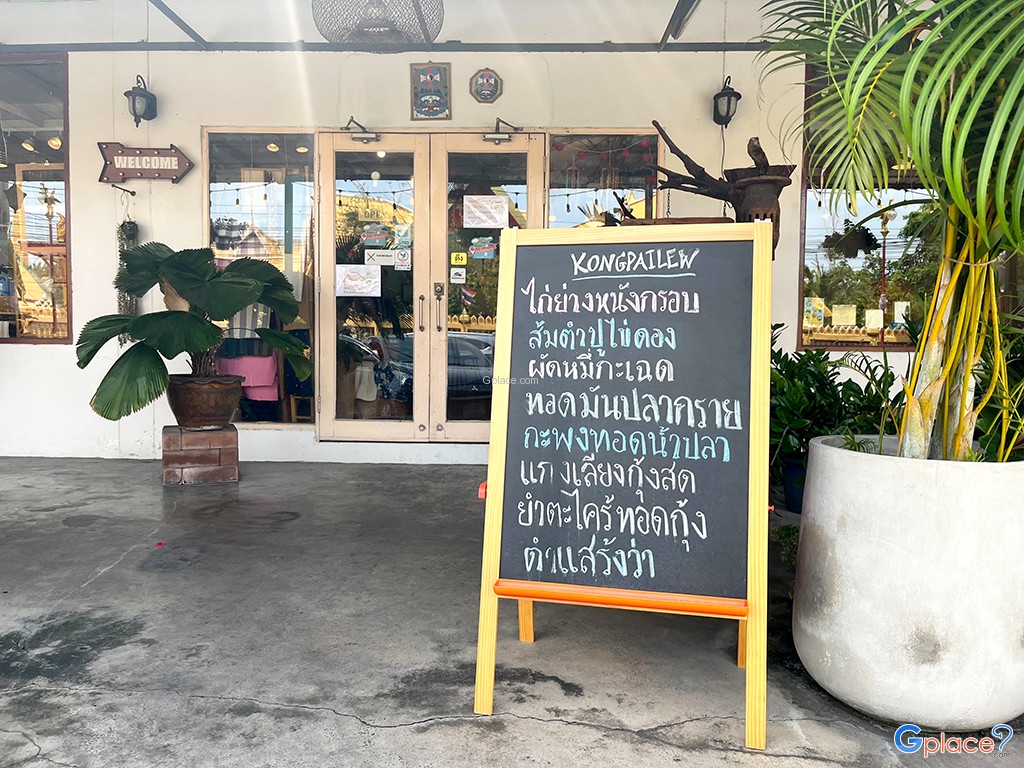 WELCOME
KONGPAILEW
ไก่ย่างหนังกรอบ
ส้มตำปูไข่ดอง
ผัดหมี่กะเฉด
ทอดมันปลากราย
กะพงทอดน้ำปลา
แกงเลียงกุ้งสด
ยำตะไคร้ทอดกุ้ง
ตำแสร้งว่า
Gplace.com
Gplace
.com